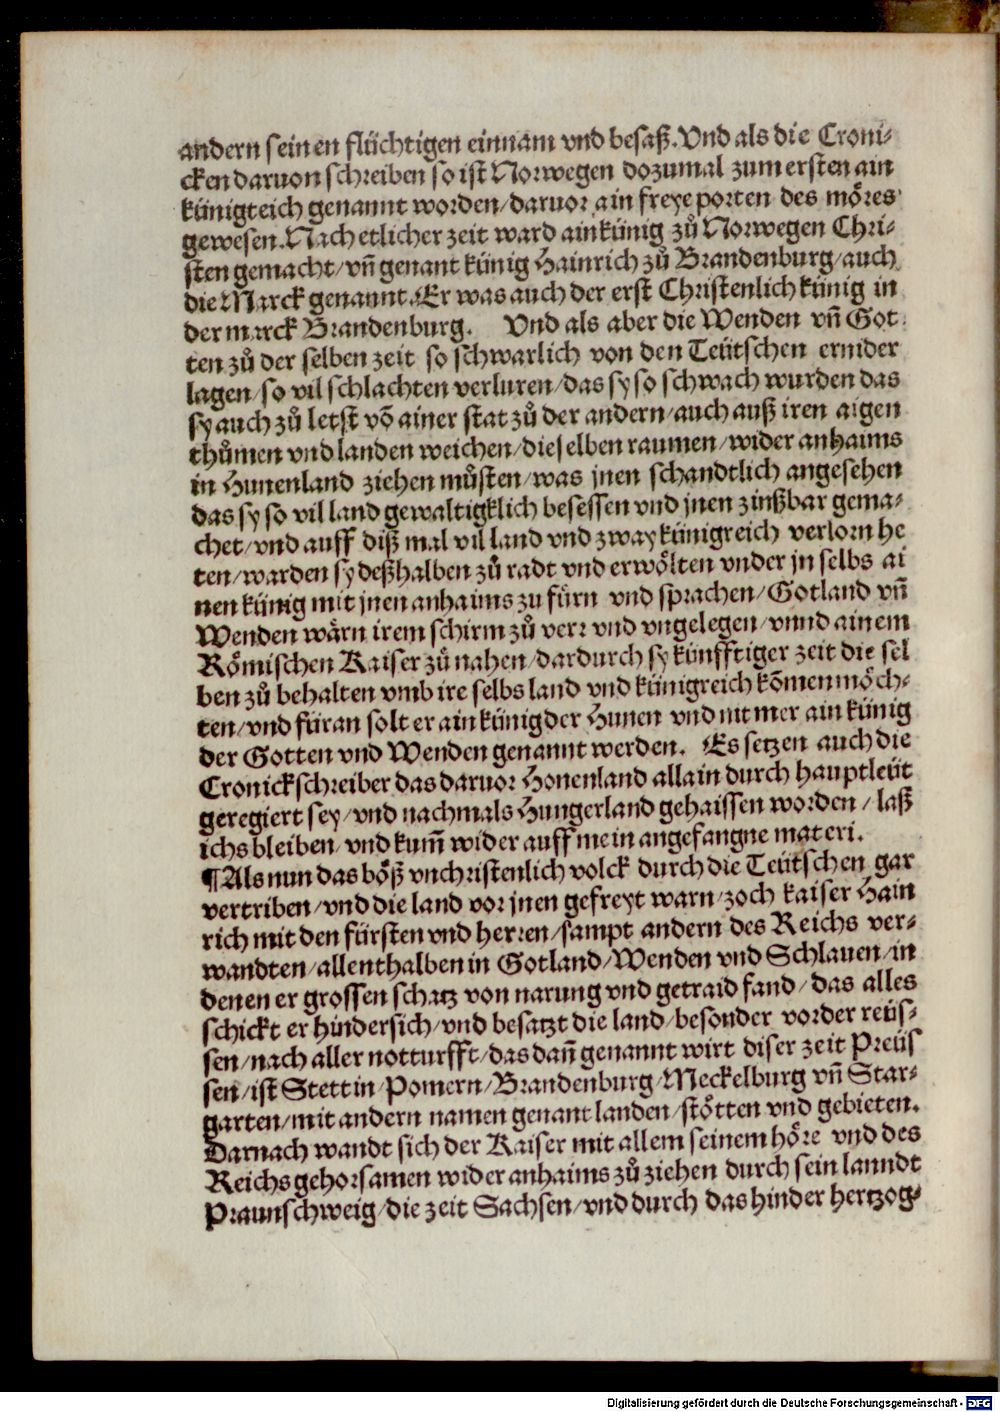 andern seinen flüchtigen einnam vnd besaß. Vnd als die Croni-
cken daruon schreiben so ist Norwegen dozumal zum ersten ain
künigteich genannt worden/daruor ain freye porten des möres
gewesen. Nach etlicher zeit ward ain künig zů Norwegen Chri-
sten gemacht/vñ genant künig Hainrich zů Brandenburg/auch
die Marck genannt. Er was auch der erst Christenlich künig in
der marck Brandenburg. Vnd als aber die Wenden vñ Got
ten zů der selben zeit so schwarlich von den Teütschen ernider
lagen/so vil schlachten verluren/das sy so schwach wurden das
sy auch zů letst võ ainer stat zů der andern/auch auß iren aigen
thůmen vnd landen weichen/dieselben raumen/wider anhaims
in Hunenland ziehen můsten/was jnen schandtlich angesehen
das sy so vil land gewaltigklich besessen vnd jnen zinßbar gema-
chet/vnd auff diß mal vil land vnd zway künigreich verlorn he
ten/warden sy deßhalben zů radt vnd erwölten vnder jn selbs ai
nen künig mit jnen anhaims zu fürn vnd sprachen/Gotland vñ
Wenden wärn irem schirm zů verr vnd vngelegen/vnnd ainem
Römischen Kaiser zů nahen/dardurch sy künfftiger zeit die sel
ben zů behalten vmb ire selbs land vnd künigreich kõmen möch-
ten/vnd füran solt er ain künig der Hunen vnd nit mer ain künig
der Gotten vnd Wenden genannt werden. Es setzen auch die
Cronickschreiber das daruor Honenland allain durch hauptleüt
geregiert sey/vnd nachmals Hungerland gehaissen worden/laß
ichs bleiben/vnd kum̃ wider auff mein angefangne materi.
¶Als nun das böß vnchristenlich volck durch die Teütschen gar
vertriben/vnd die land vor jnen gefreyt warn/zoch kaiser Hain
rich mit den fürsten vnd herren/sampt andern des Reichs ver-
wandten/allenthalben in Gotland/Wenden vnd Schlauen/in
denen er grossen schatz von narung vnd getraid fand/das alles
schickt er hindersich/vnd besatzt die land/besonder vorder reüs-
sen/nach aller notturfft/das dañ genannt wirt diser zeit Preüs
sen/ist Stettin/Pomern/Brandenburg/Meckelburg vñ Star-
garten/mit andern namen genant landen/stötten vnd gebieten.
Darnach wandt sich der Kaiser mit allem seinem höre vnd des
Reichs gehorsamen wider anhaims zů ziehen durch sein lanndt
Praunschweig/die zeit Sachsen/vnd durch das hinder hertzog-
Digitalisierung gefördert durch die Deutsche Forschungsgemeinschaft - DFG